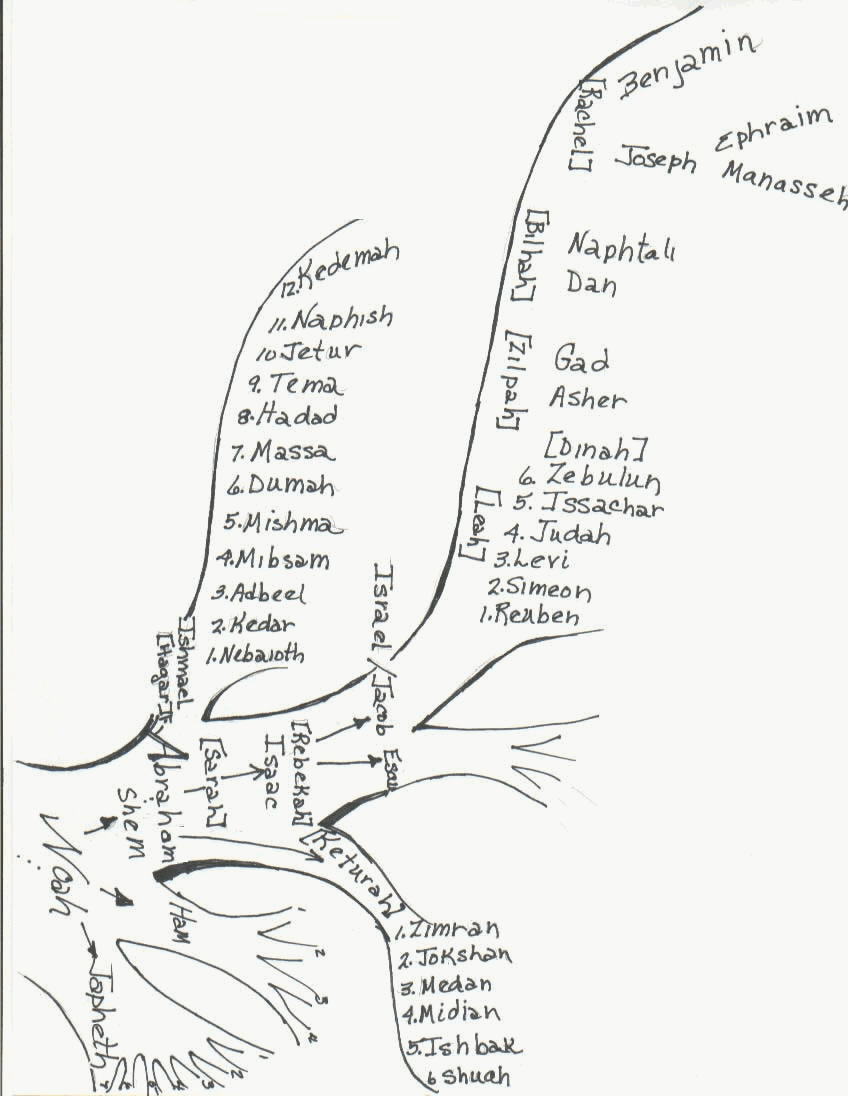 Benjamin
[Rachel]
Joseph
Ephraim
Manasseh
[Bilhah]
Naphtali
Dan
[Zilpah]
Gad
Asher
[Dinah]
6. Zebulun
[Leah]
5. Issachar
4. Judah
3. Levi
2. Simeon
1. Reuben
12. Kedemah
11. Naphish
10. Jetur
9. Tema
8. Hadad
7. Massa
6. Dumah
5. Mishma
4. Mibsam
3. Adbeel
2. Kedar
1. Nebaioth
Ishmael
[Hagar]
Israel / Jacob
Esau
[Rebekah]
Isaac
[Sarah]
Abraham
Shem
Noah
Ham
2
3
4
Japheth
2
3
4
5
6
7
[Keturah]
1. Zimran
2. Jokshan
3. Medan
4. Midian
5. Ishbak
6 Shuah